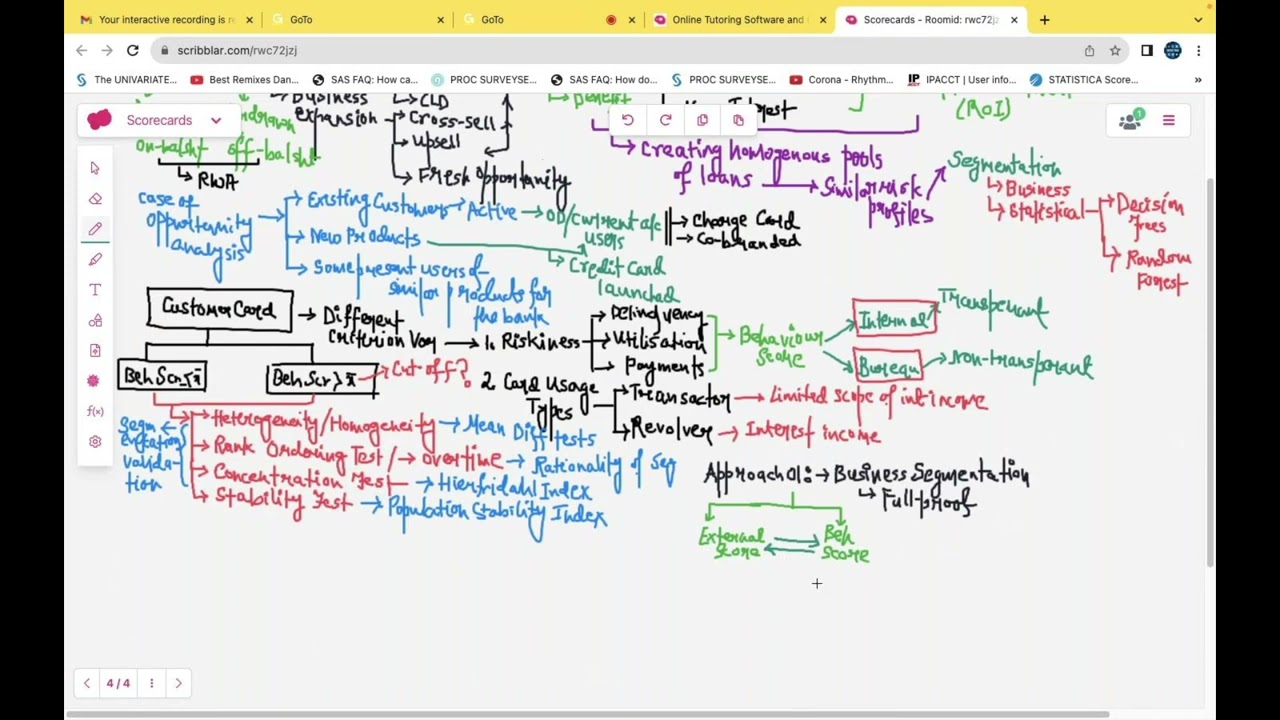 Your interactive recording is re
GoTo
GoTo
Online Tutoring Software and
Scorecards - Roomid: rwc72jz
scribblar.com/rwc72jzj
The UNIVARIATE...
Best Remixes Dan...
SAS FAQ: How ca...
PROC SURVEYSE...
SAS FAQ: How do...
PROC SURVEYSE...
Corona - Rhythm...
IPACCT | User info...
STATISTICA Score...
Scorecards
Business
expansion
CLD
Cross-sell
Upsell
Fresh opportunity
Benefit
(ROI)
on-balsht off-balsht
RWA
Creating homogenous pools
of loans
Similar risk
profiles
Segmentation
Business
Statistical
Decision
Trees
Random
Forest
Case of
opportunity
analysis
Existing Customer
Active
OD/Current a/c
users
Charge Card
Co-branded
New Products
Credit Card
launched
Some present users of
similar products for
the bank
Customer Card
Different
Criterion Var
1. Riskiness
Delinquency
Utilisation
Payments
Behaviour
Score
Internal
Transparant
Bureau
Non-transparant
Beh Scr≤x̄
Beh Scr>x̄
Cut off?
2 Card Usage
Types
Transactor
Limited scope of int income
Revolver
Interest income
Segm
entation
valida-
tion
Heterogeneity/Homogeity
Mean Diff tests
Rank Ordering Test/
overtime
Rationality of Seg
Concentration Test
Hierfridahl Index
Stability Test
Population Stability Index
Approach 01:
Business Segmentation
Full-proof
External
Score
Beh
Score
4/4